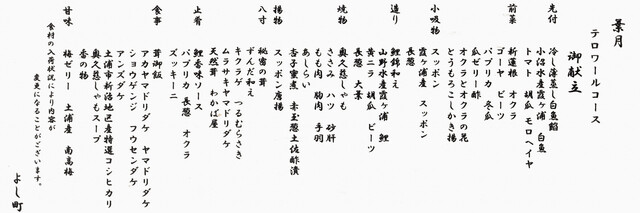 葉月
テロワールコース
御献立
先付
冷し薄葛し白魚餡
小沼水産霞ヶ浦 白魚
トマト 胡瓜 モロヘイヤ
前菜
新蓮根 オクラ
ゴーヤ ビーツ
パプリカ 冬瓜
瓜ゼリー酢
オクラとオクラの花
とうもろこしかき揚
小吸物
スッポン
霞ヶ浦産 スッポン
長葱
造り
鯉錦和え
山野水産霞ヶ浦 鯉
黄ニラ 胡瓜 ビーツ
長葱 大葉
焼物
奥久慈しゃも
ささみ ハツ 砂肝
もも肉 胸肉 手羽
あしらい
杏子蜜煮 赤玉葱土佐酢漬
揚物
スッポン唐揚
八寸
秘密の茸
ずんだ和え
キクラゲ つるむらさき
ムラサキヤマドリダケ
天然茸 わかば屋
止肴
鯉香味ソース
パプリカ 長葱 オクラ
ズッキーニ
食事
茸御飯
アカヤマドリダケ ヤマドリダケ
ショウゲンジ フウセンダケ
アンズダケ
土浦市新治地区産特選コシヒカリ
奥久慈しゃもスープ
香の物
甘味
梅ゼリー 土浦産 南高梅
食材の入荷状況により内容が
変更になることがございます。
よし町